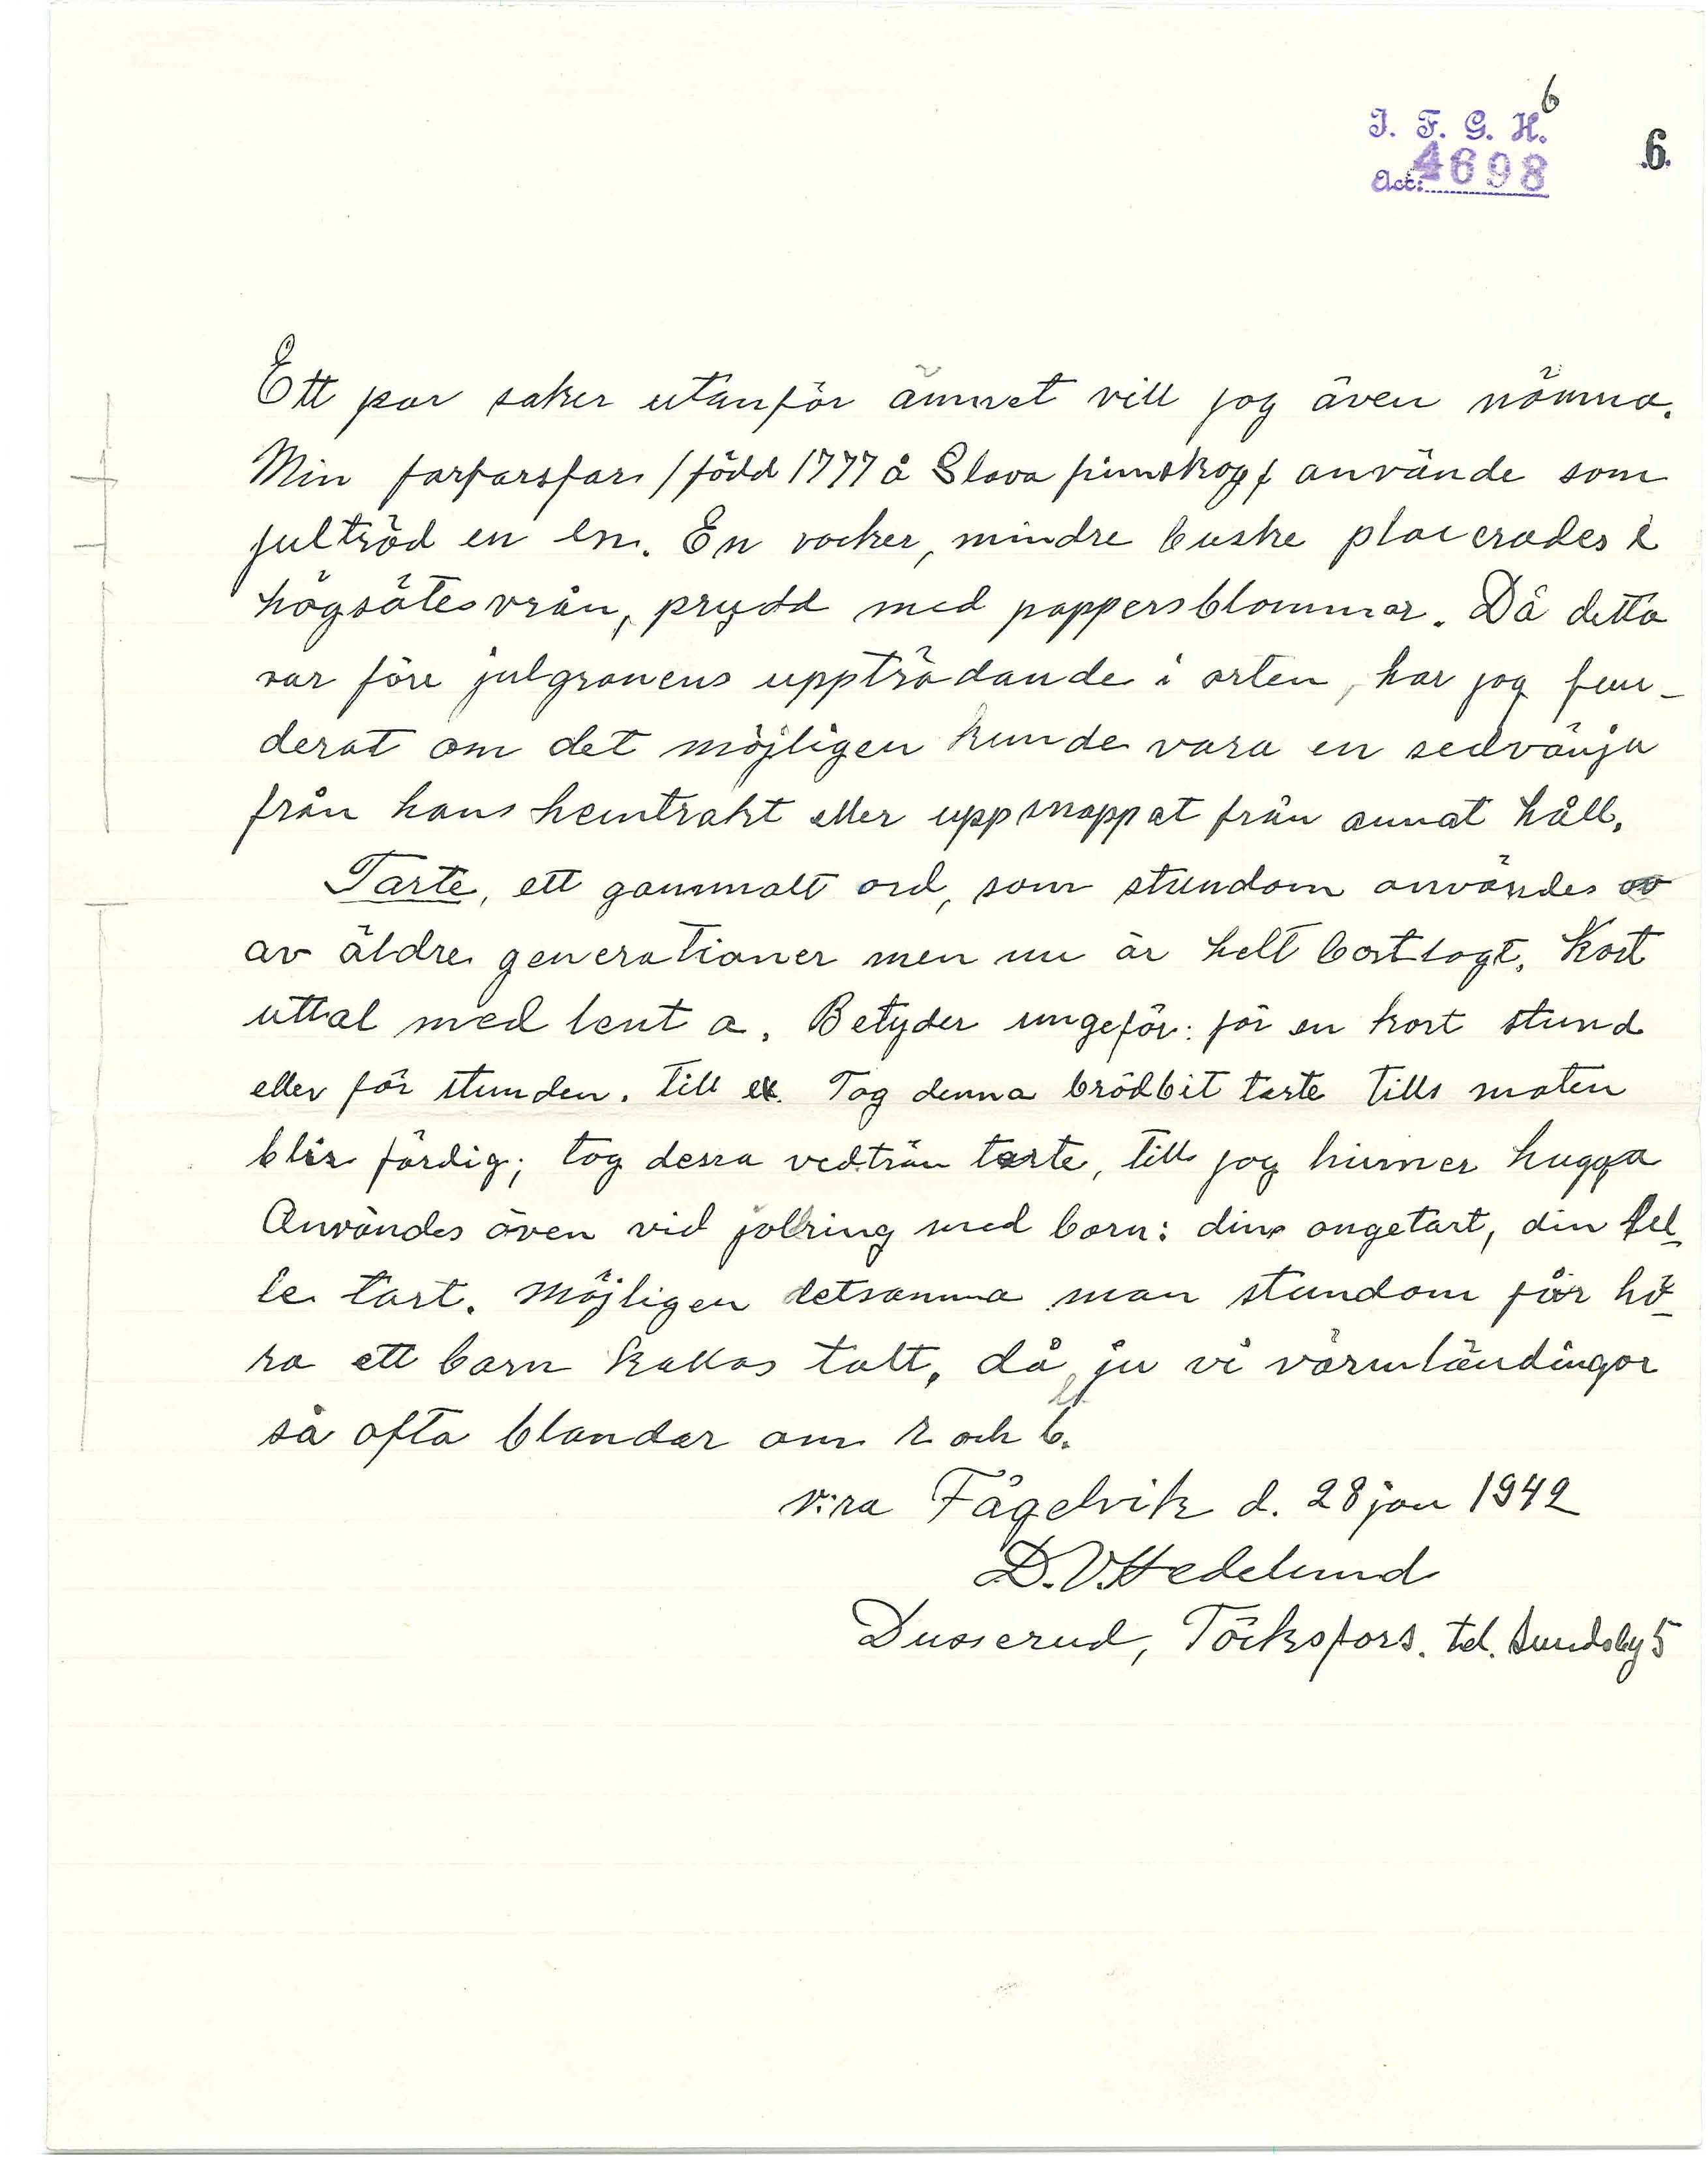 6
I. F. G. H.
Acc: 4698
6.
Ett par saker utanför ämnet vill jag även nämna.
Min farfarsfar /född 1777 å Glava finnskog/ använde som
julträd en en. En vacker, mindre buske placerades i
högsätesvrån, prydd med pappersblommor. Då detta
var före julgranens uppträdande i orten, har jag fun-
derat om det möjligen kunde vara en sedvänja
från hans hemtrakt eller uppsnappat från annat håll.
Tarte, ett gammalt ord, som stundom användes
av äldre generationer men nu är helt bortlagt. Kort
uttal med lent a. Betyder ungefär: för en kort stund
eller för stunden. Till ex. Tag denna brödbit tarte tills maten
blir färdig; tag dessa vedträn tarte, tills jag hinner hugga
Användes även vid jollring med barn: din angetart, din lel-
le tart. Möjligen detsamma man stundom får hö-
ra ett barn kallas talt, då ju vi värmländingar
så ofta blandar om r och l.
V:ra Fågelvik d. 28 jan 1942
D.V.Hedelund
Dusserud, Töcksfors. tel. Sundsby 5